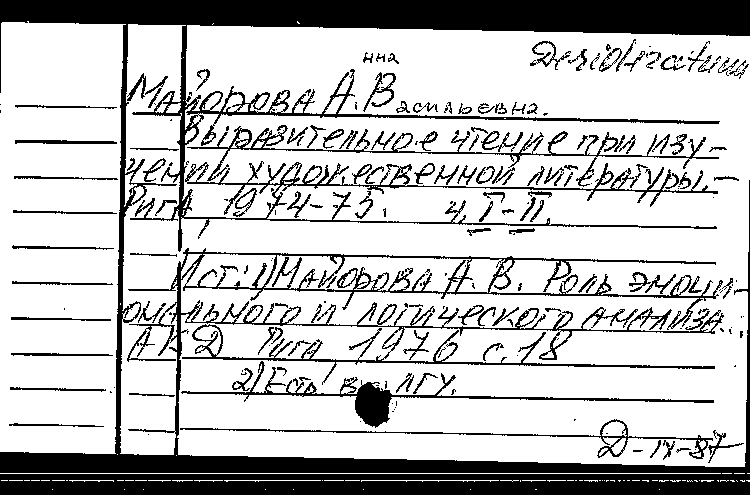 Desiderata
нна
Майорова А. Васильевна.
Выразительное чтение при изу-
чении художественной литературы.-
Рига, 1974-75. ч. I-II.
Ист: 1) Майорова А. В. Роль эмоци-
онального и логического анализа...
АКД Рига, 1976 с. 18
2) Есть в ЛГУ.
Д-IX-87